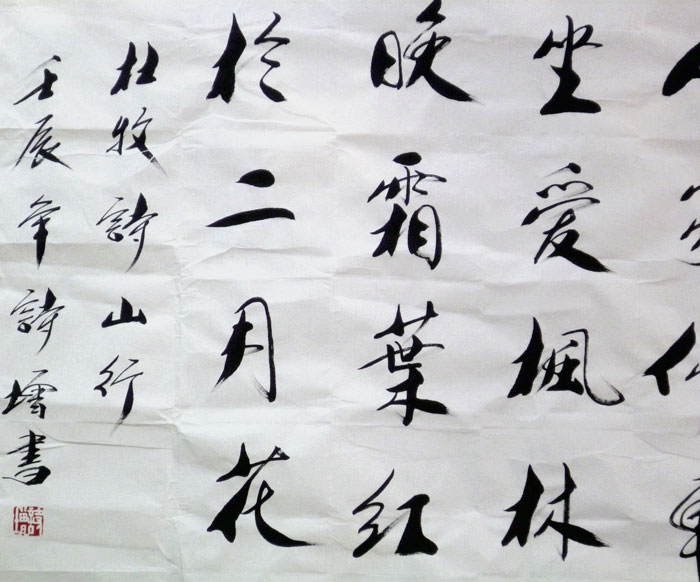 坐愛楓林
晚霜葉紅
於二月花
杜牧詩山行
壬辰年詩書